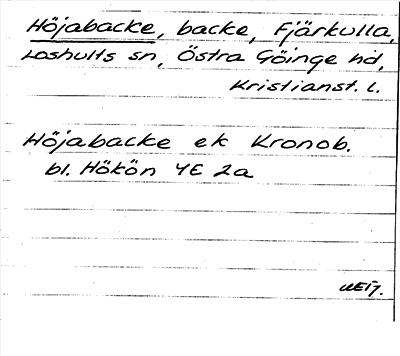 Höjabacke, backe, Fjärkulla,
Loshults sn, Östra Göinge hd,
Kristianst. l.
Höjabacke ek Kronob.
bl. Hökön 4E 2a